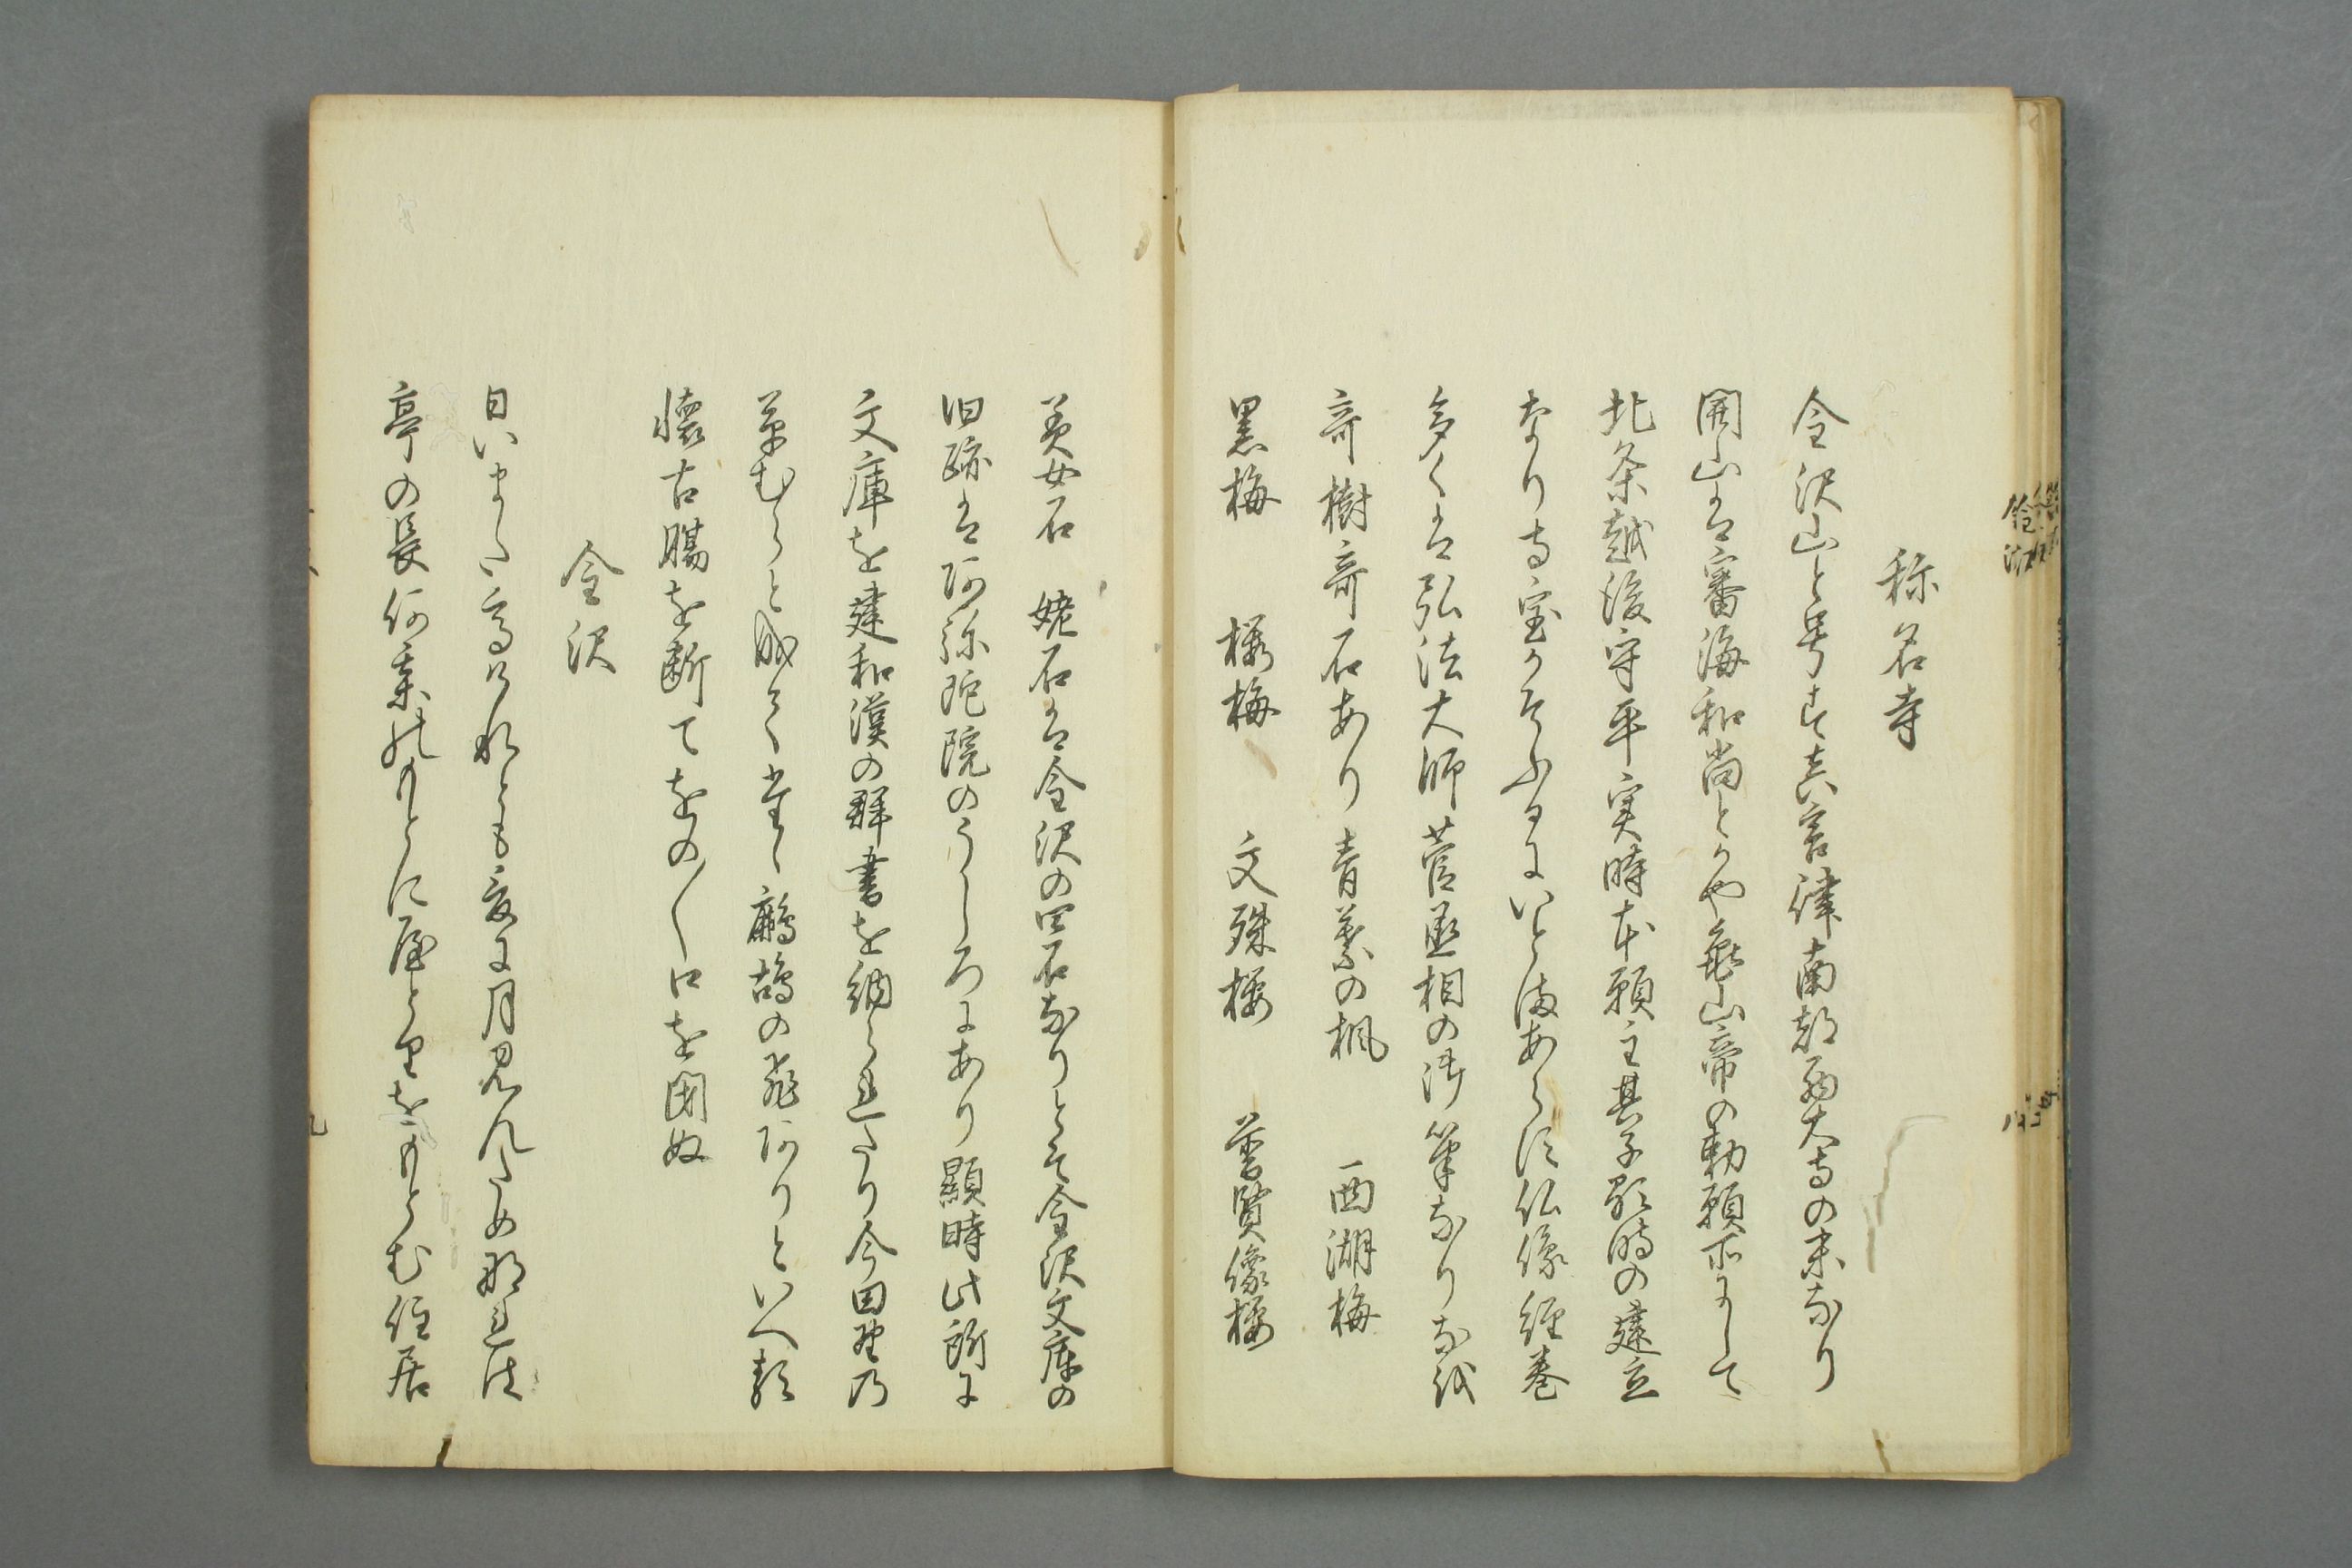 称名寺
金沢山と号す真言律南都西大寺の末なり
開山は審海和尚とかや亀山帝の勅願所にして
北条越後守平実時本願主其子顕時の建立
なり寺宝かそふるにいとまあらす仏像経巻
多くは弘法大師菅丞相の御筆なりなを
奇樹奇石あり青葉の楓　西湖梅
黒梅　桜梅　文殊桜　普賢像桜
美女石　姥石は金沢の四石なりとそ金沢文庫の
旧跡は阿弥陀院のうしろにあり顕時此所に
文庫を建和漢の群書を納られたり今田野乃
草むらと成てく 鷓鴣の飛ありといへ
懐古腸を断てをの〱口を閉ぬ
金沢
日いまた高けれとも爰に月見んため
亭の長何某のもとに宿とりをもとむ住居